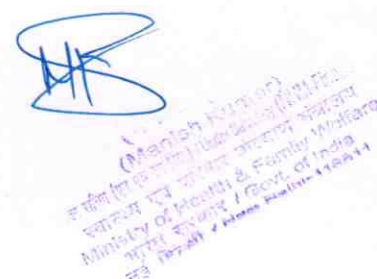 (Manish Kumar)
स्वास्थ्य एवं परिवार कल्याण मंत्रालय
Ministry of Health & Family Welfare
भारत सरकार / Govt. of India
नई दिल्ली / New Delhi-110011